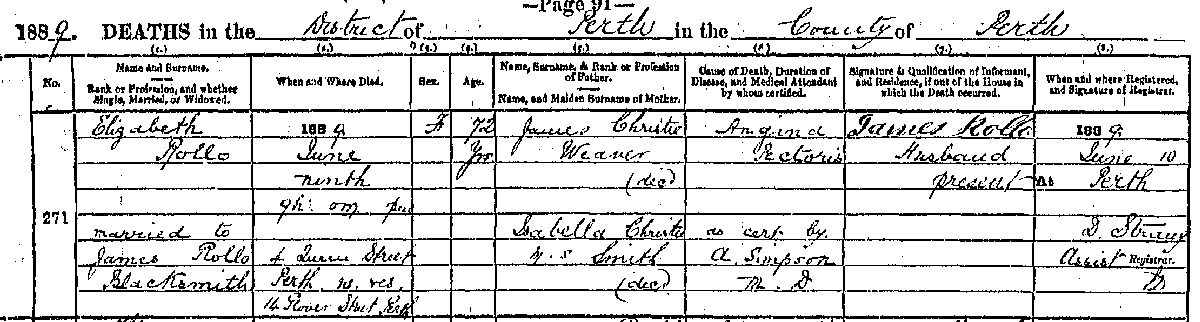 —Page 91—
1889. DEATHS in the District of Perth in the County of Perth
(1.) (2.) (3.) (4.) (5.) (6.) (7.) (8.)
No.
Name and Surname.
Rank or Profession, and whether Single, Married, or Widowed.
When and Where Died.
Sex.
Age.
Name, Surname, & Rank or Profession of Father.
Name, and Maiden Surname of Mother.
Cause of Death, Duration of Disease, and Medical Attendant by whom certified.
Signature & Qualification of Informant, and Residence, if out of the House in which the Death occurred.
When and where Registered, and Signature of Registrar.
271
Elizabeth
Rollo
married to
James Rollo
Blacksmith
1889
June
ninth
9h. 0m. P.M.
4 Street
Perth. us. res.
14 Street, Perth
F
72
Yrs
James Christie
Weaver
(decd)
Isabella Christie
m.s. Smith
(decd)
Angina
Pectoris
as cert by
A. Simpson
M.D.
James Rollo
Husband
present
1889.
June 10
At Perth
D.
Assist Registrar.